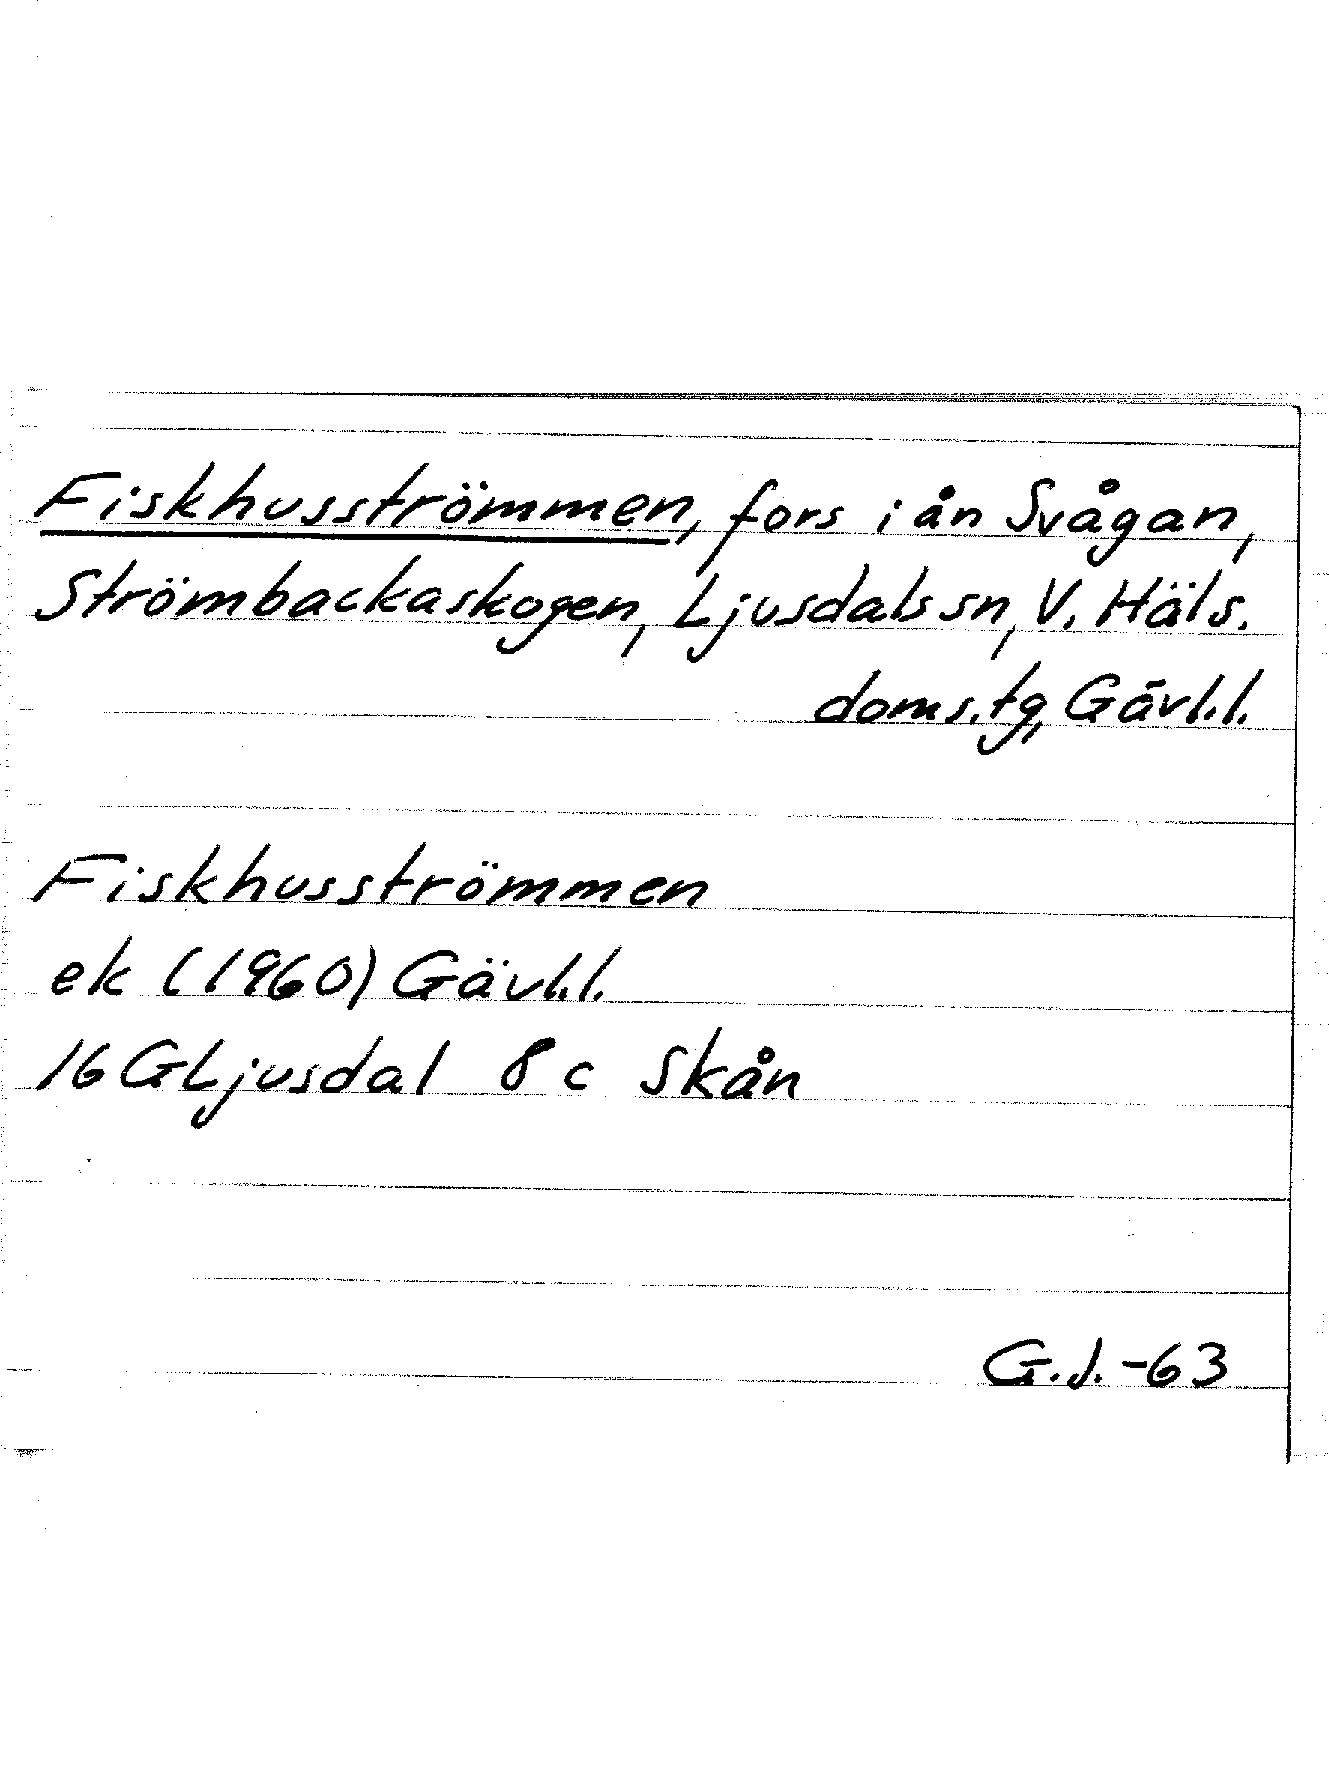 Fiskhusströmmen, fors i ån Svågan,
Strömbackaskogen, Ljusdals sn, V. Häls.
doms.tg, Gävl.l.
Fiskhusströmmen
ek (1960) Gävl.l.
16 G Ljusdal 8 c Skån
G.J. -63